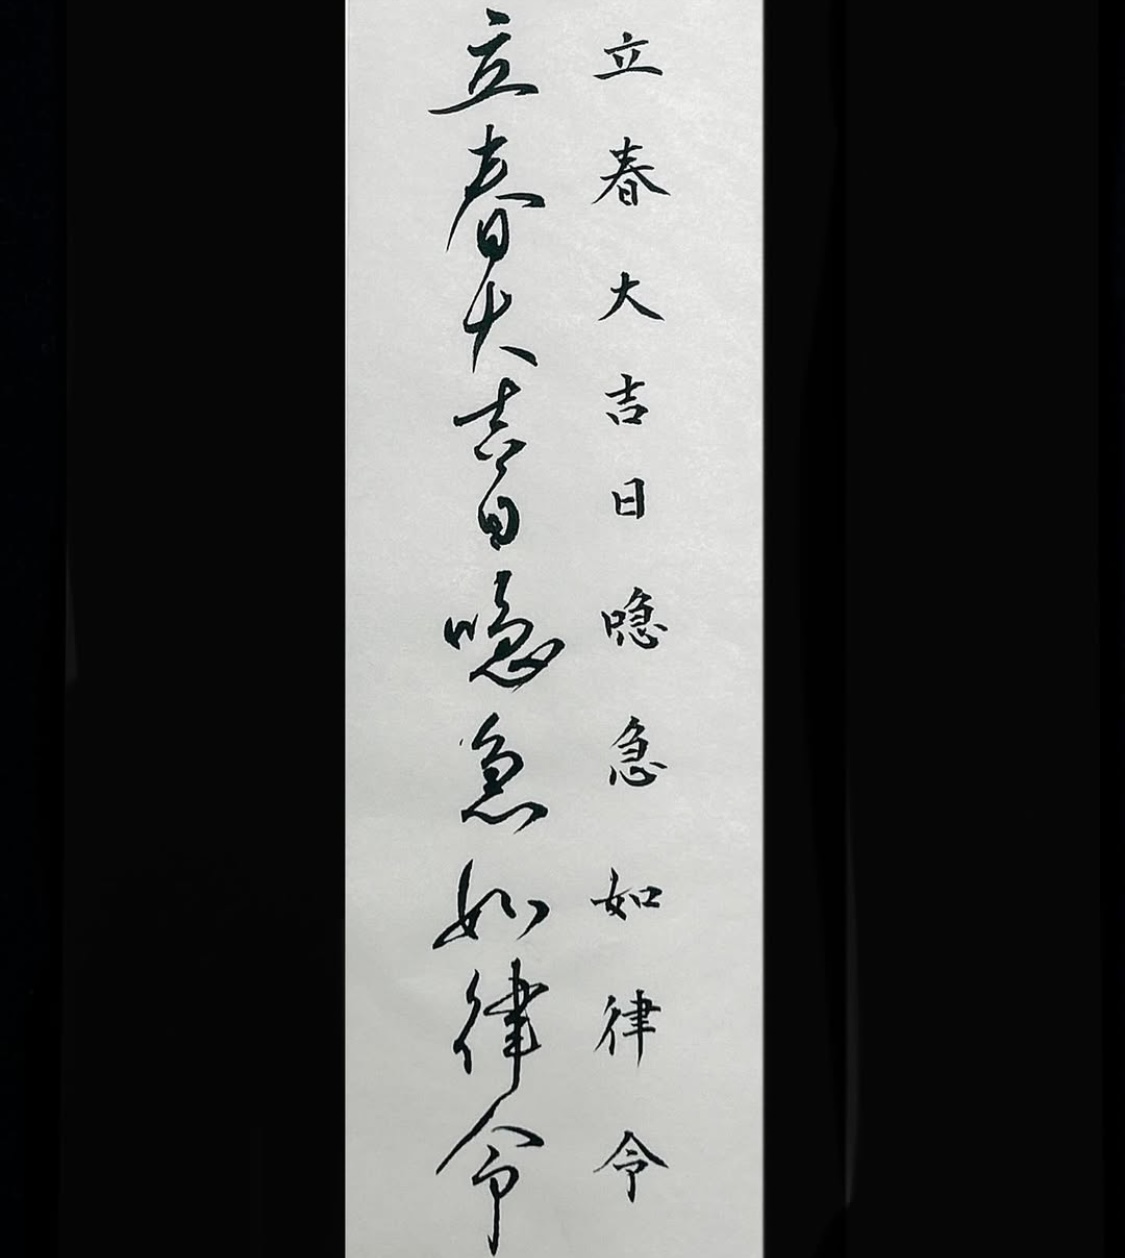 立春大吉日喼急如律令
立春大吉日喼急如律令